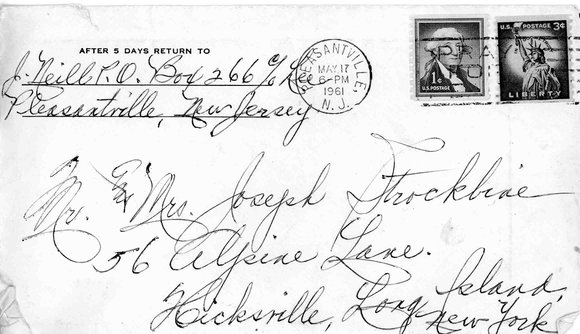 AFTER 5 DAYS RETURN TO
J. Neill P.O. Box 266 c/o Lee
Pleasantville, New Jersey
PLEASANTVILLE,
MAY 17
6 - PM
1961
N. J.
1¢
U.S. POSTAGE
U.S. POSTAGE 3¢
LIBERTY
Mr. & Mrs. Joseph Strockbine
56 Alpine Lane.
Hicksville, Long Island,
New York